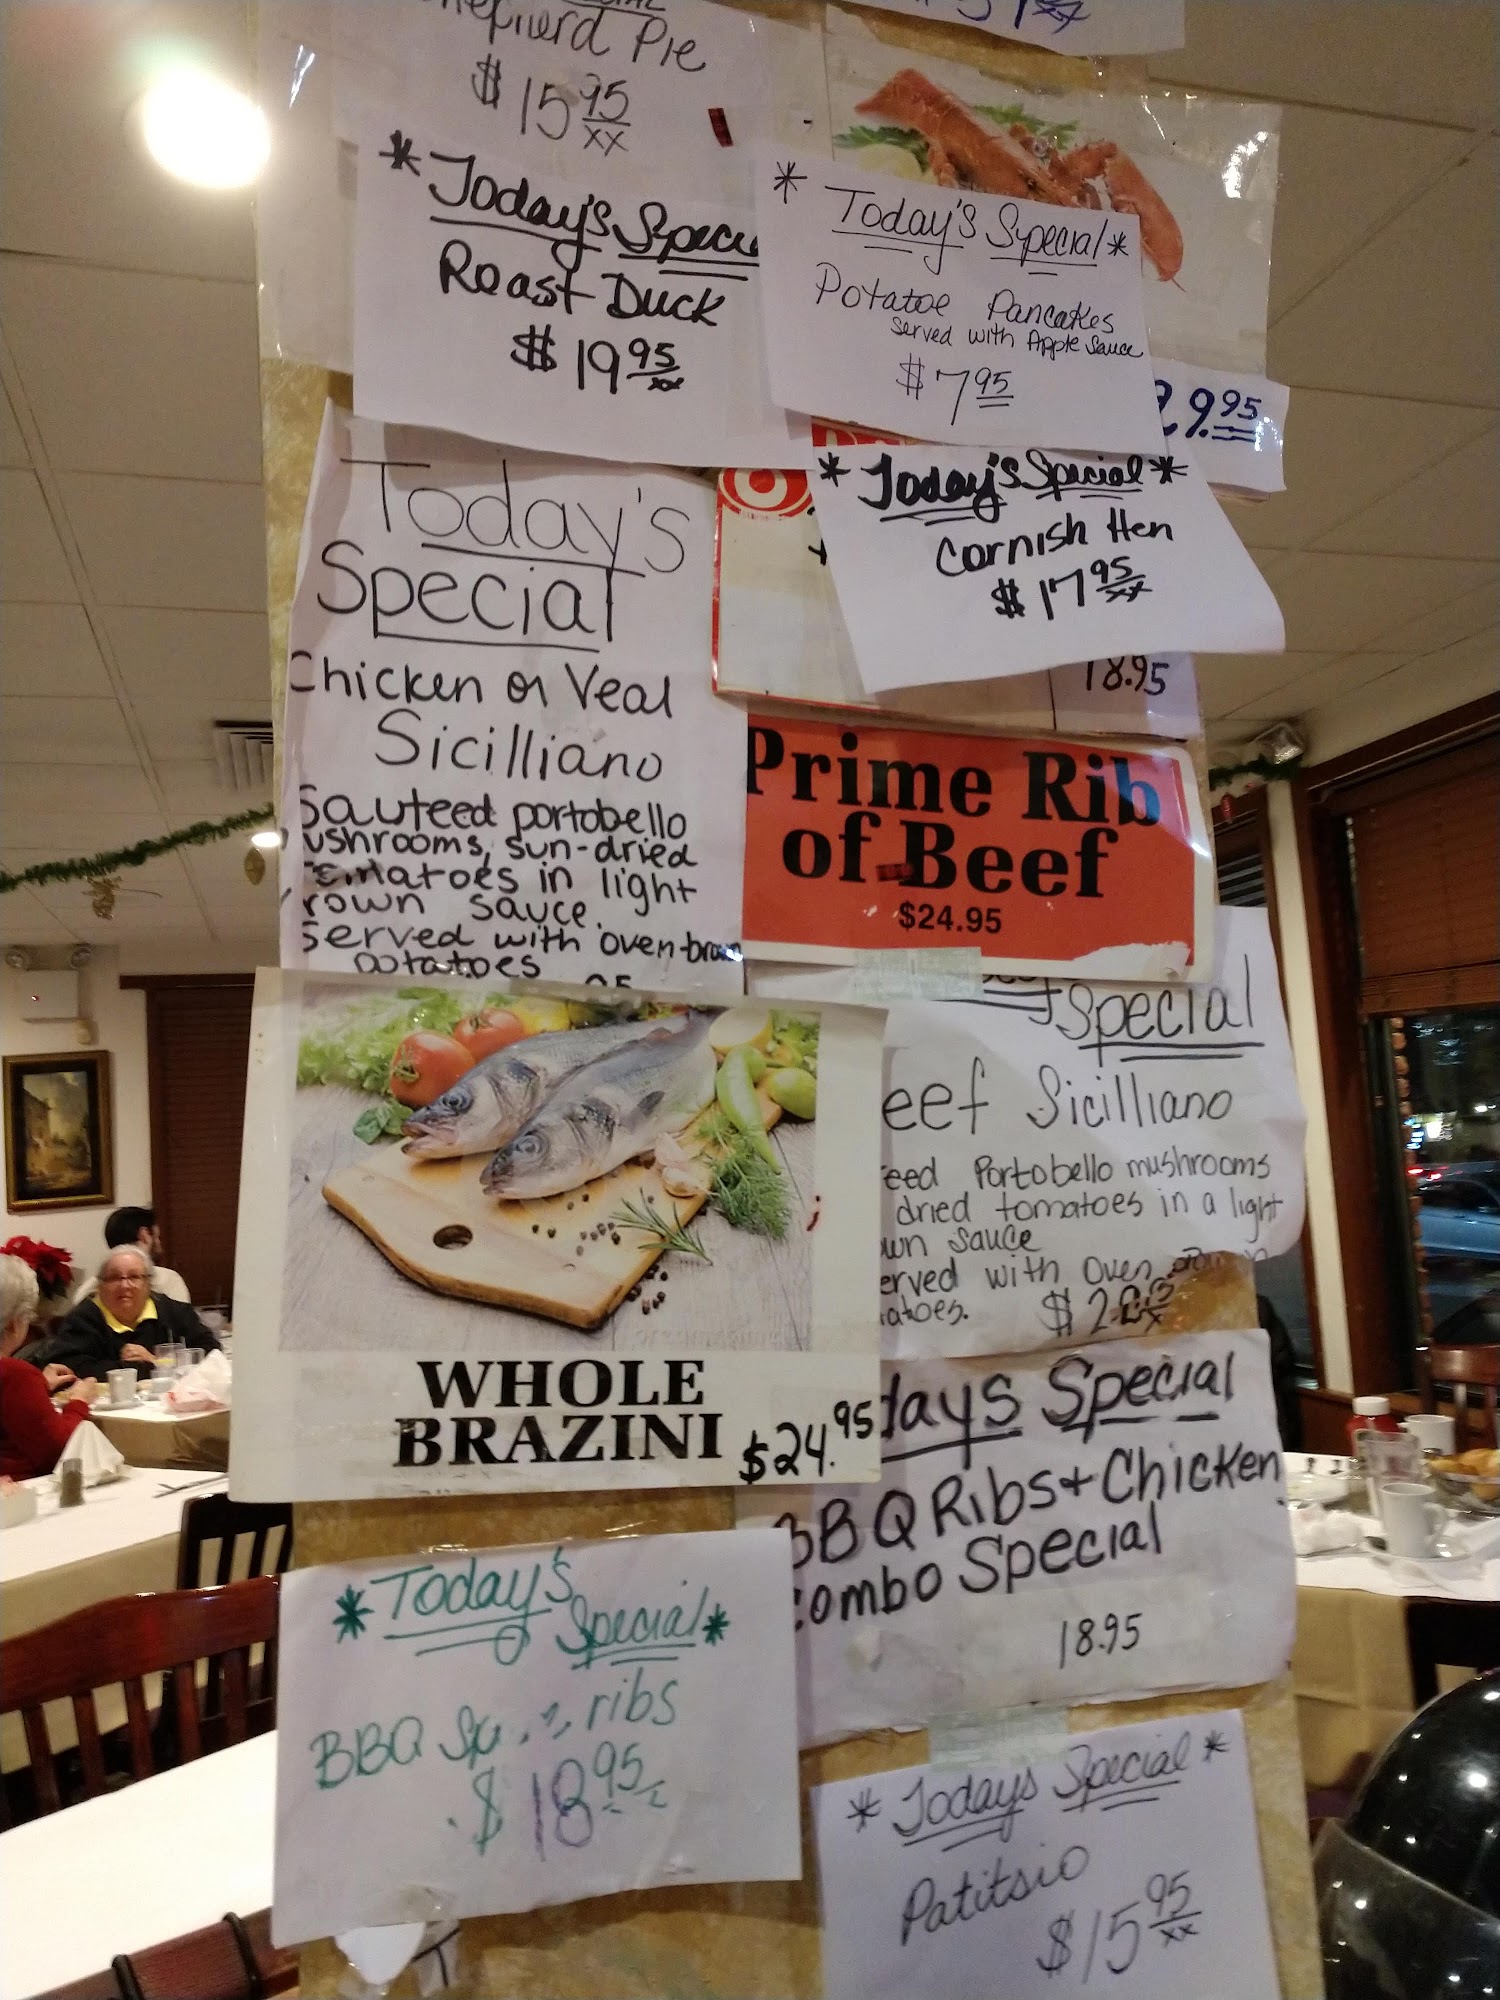 Pie
$15.95
xx
*Today's
Roast Duck
$19.95
xx
* Today's Special*
Potatoe Pancakes
served with Apple Sauce
$7.95
29.95
*Today's Special*
Cornish Hen
$17.95
xx
18.95
Today's
Special
Chicken or Veal
Sicilliano
Sauteed portobello
sun-dried
in light
sauce.
Served with oven-brown
potatoes
Prime Rib
of Beef
$24.95
Special
Sicilliano
Portobello mushrooms
dried tomatoes in a light
sauce
with oven
WHOLE
BRAZINI
$24.95
Special
BBQ Ribs + Chicken
Combo Special
18.95
*Today's
Special*
BBQ ribs
$18.95
* Todays Special *
Patitsio
$15.95
xx